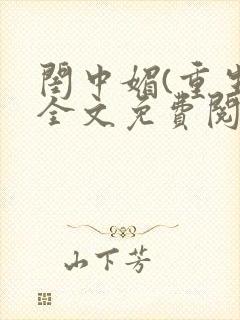 閨中媚(重生
全文免費閱
山下芳